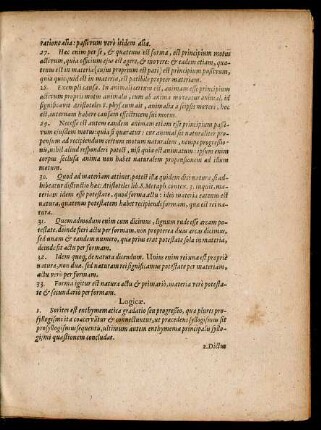 ratione acta: passerum verò itidem acta.
27. Hæc enim per se, & quatenus est forma, est principium motus
actorum, quia officium eius est agere, & movere: & eadem etiam, quatenus
est in materia, cuius proprium est pati, est principium passorum,
quia quicquid est in materia, est patibile propter materiam.
28. Exempli causa. In animali certum est, animam esse principium
proprij motus animalis, cum ab anima moveatur animal, id
significante Aristotele 8. phys. cum ait, animalia à seipsis moveri, hoc
est, internam habere causam effectricem sui motus.
29. Necesse est autem eandem animam etiam esse principium passorum
eiusdem motus: quia si quæratur: cur animal sit naturaliter
propensum ad recipiendum certum motum naturalem, nempe progressionis,
nihil aliud responderi potest, nisi quia est animatum: ipsum enim
corpus seclusa anima non habet naturalem propensionem ad illum
motum.
30. Quod ad materiam attinet, potest ita quidem dici natura, si adhibeatur
distinctio hæc. Aristoteles lib. 8. Metaph. contex. 3. inquit, materiam
idem esse potestate, id quod forma est actu: ideo materia poterit dici
natura, quatenus potestatem habet recipiendi formam, qua est rei natura.
31. Quemadmodum enim cum dicimus, lignum rude esse arcam potestate,
deinde fieri actu per formam, non propterea duas arcas dicimus,
sed unam & eandem numero, quæ prius erat potestate sola in materia,
deinde sit actu per formam.
32. Idem quoque de natura dicendum. Unius enim rei una est propriè
natura, non duæ, sed naturam rei significamus potestate per materiam,
actu verò per formam.
33. Forma igitur est natura actu & primario, materia verò potestate
& secundario per formam.
Logicæ.
1. Sorites est enthymematica gradatio seu progressio, qua plures prosyllogismi
ita coacervantur & connectuntur, ut præcedens syllogismus sit
prosyllogismus sequentis, ultimum autem enthymema principalis syllogismi
quæstionem concludat.
2. Dictus